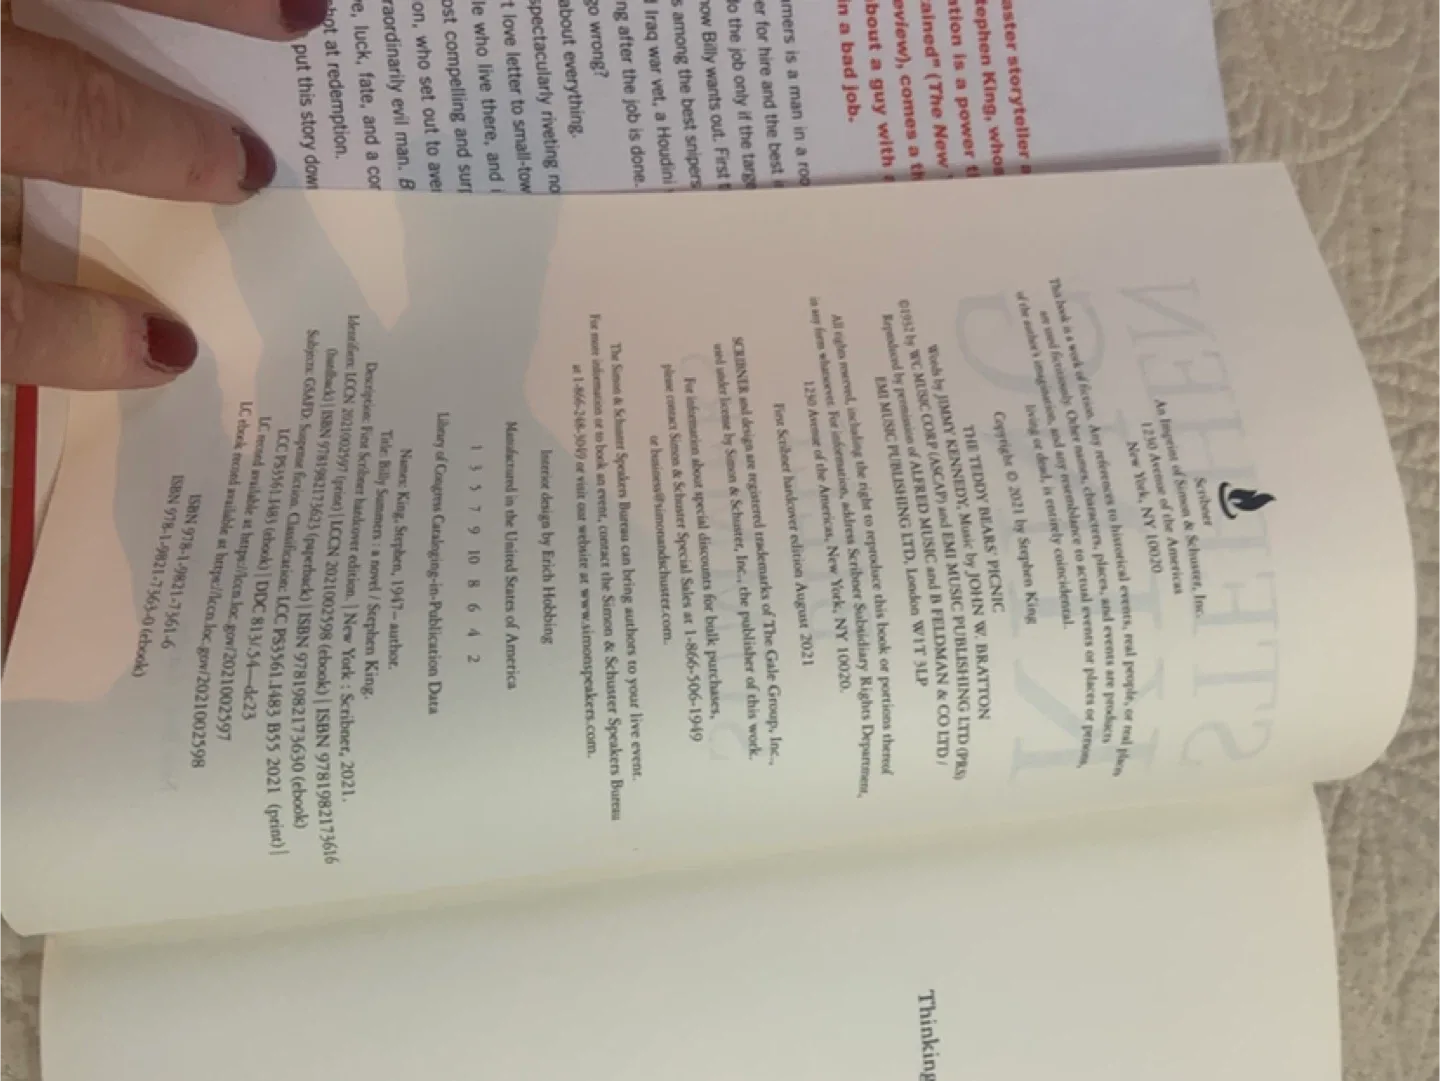 aster storyteller a
tephen King, whos
ation is a power t
ained" (The New
eview), comes a th
about a guy with a
in a bad job.
mers is a man in a roo
er for hire and the best
do the job only if the targe
now Billy wants out. First t
s among the best snipers
d Iraq war vet, a Houdini
ng after the job is done.
go wrong?
about everything.
spectacularly riveting no
t love letter to small-tow
le who live there, and i
ost compelling and surp
on, who set out to aver
raordinarily evil man. B
re, luck, fate, and a cor
shot at redemption.
put this story down
STEPHEN
KING
Scribner
An Imprint of Simon & Schuster, Inc.
1230 Avenue of the Americas
New York, NY 10020
This book is a work of fiction. Any references to historical events, real people, or real places
are used fictitiously. Other names, characters, places, and events are products
of the author's imagination, and any resemblance to actual events or places or persons,
living or dead, is entirely coincidental.
Copyright © 2021 by Stephen King
THE TEDDY BEARS' PICNIC
Words by JIMMY KENNEDY, Music by JOHN W. BRATTON
©1932 by WC MUSIC CORP (ASCAP) and EMI MUSIC PUBLISHING LTD (PRS)
Reproduced by permission of ALFRED MUSIC and B FELDMAN & CO LTD /
EMI MUSIC PUBLISHING LTD, London W1T 3LP
All rights reserved, including the right to reproduce this book or portions thereof
in any form whatsoever. For information, address Scribner Subsidiary Rights Department,
1230 Avenue of the Americas, New York, NY 10020.
First Scribner hardcover edition August 2021
SCRIBNER and design are registered trademarks of The Gale Group, Inc.,
used under license by Simon & Schuster, Inc., the publisher of this work.
For information about special discounts for bulk purchases,
please contact Simon & Schuster Special Sales at 1-866-506-1949
or business@simonandschuster.com.
The Simon & Schuster Speakers Bureau can bring authors to your live event.
For more information or to book an event, contact the Simon & Schuster Speakers Bureau
at 1-866-248-3049 or visit our website at www.simonspeakers.com.
Interior design by Erich Hobbing
Manufactured in the United States of America
1 3 5 7 9 10 8 6 4 2
Library of Congress Cataloging-in-Publication Data
Names: King, Stephen, 1947– author.
Title: Billy Summers : a novel / Stephen King.
Description: First Scribner hardcover edition. | New York : Scribner, 2021.
Identifiers: LCCN 2021002597 (print) | LCCN 2021002598 (ebook) | ISBN 9781982173616
(hardback) | ISBN 9781982173623 (paperback) | ISBN 9781982173630 (ebook)
Subjects: GSAFD: Suspense fiction. Classification: LCC PS3561.I483 B55 2021 (print) |
LCC PS3561.I483 (ebook) | DDC 813/.54—dc23
LC record available at https://lccn.loc.gov/2021002597
LC ebook record available at https://lccn.loc.gov/2021002598
ISBN 978-1-9821-7361-6
ISBN 978-1-9821-7363-0 (ebook)
Thinking